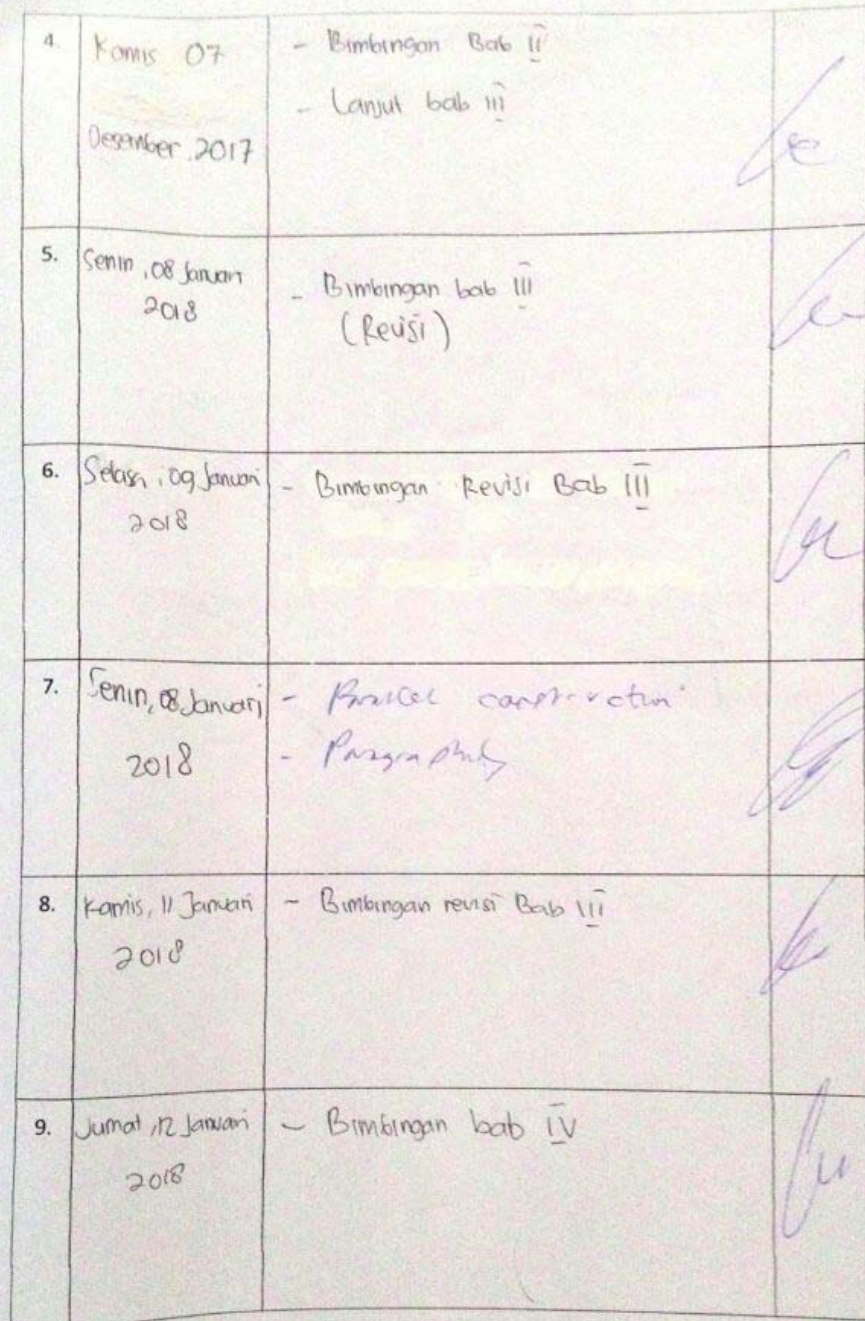 4.
Kamis 07
Desember 2017
- Bimbingan Bab II
- Lanjut bab III
5.
Senin, 08 Januari
2018
- Bimbingan bab III
(Revisi)
6.
Selasa, 09 Januari
2018
- Bimbingan Revisi Bab III
7.
Senin, 08 Januari
2018
- construction
-
8.
Kamis, 11 Januari
2018
- Bimbingan revisi Bab III
9.
Jumat, 12 Januari
2018
- Bimbingan bab IV